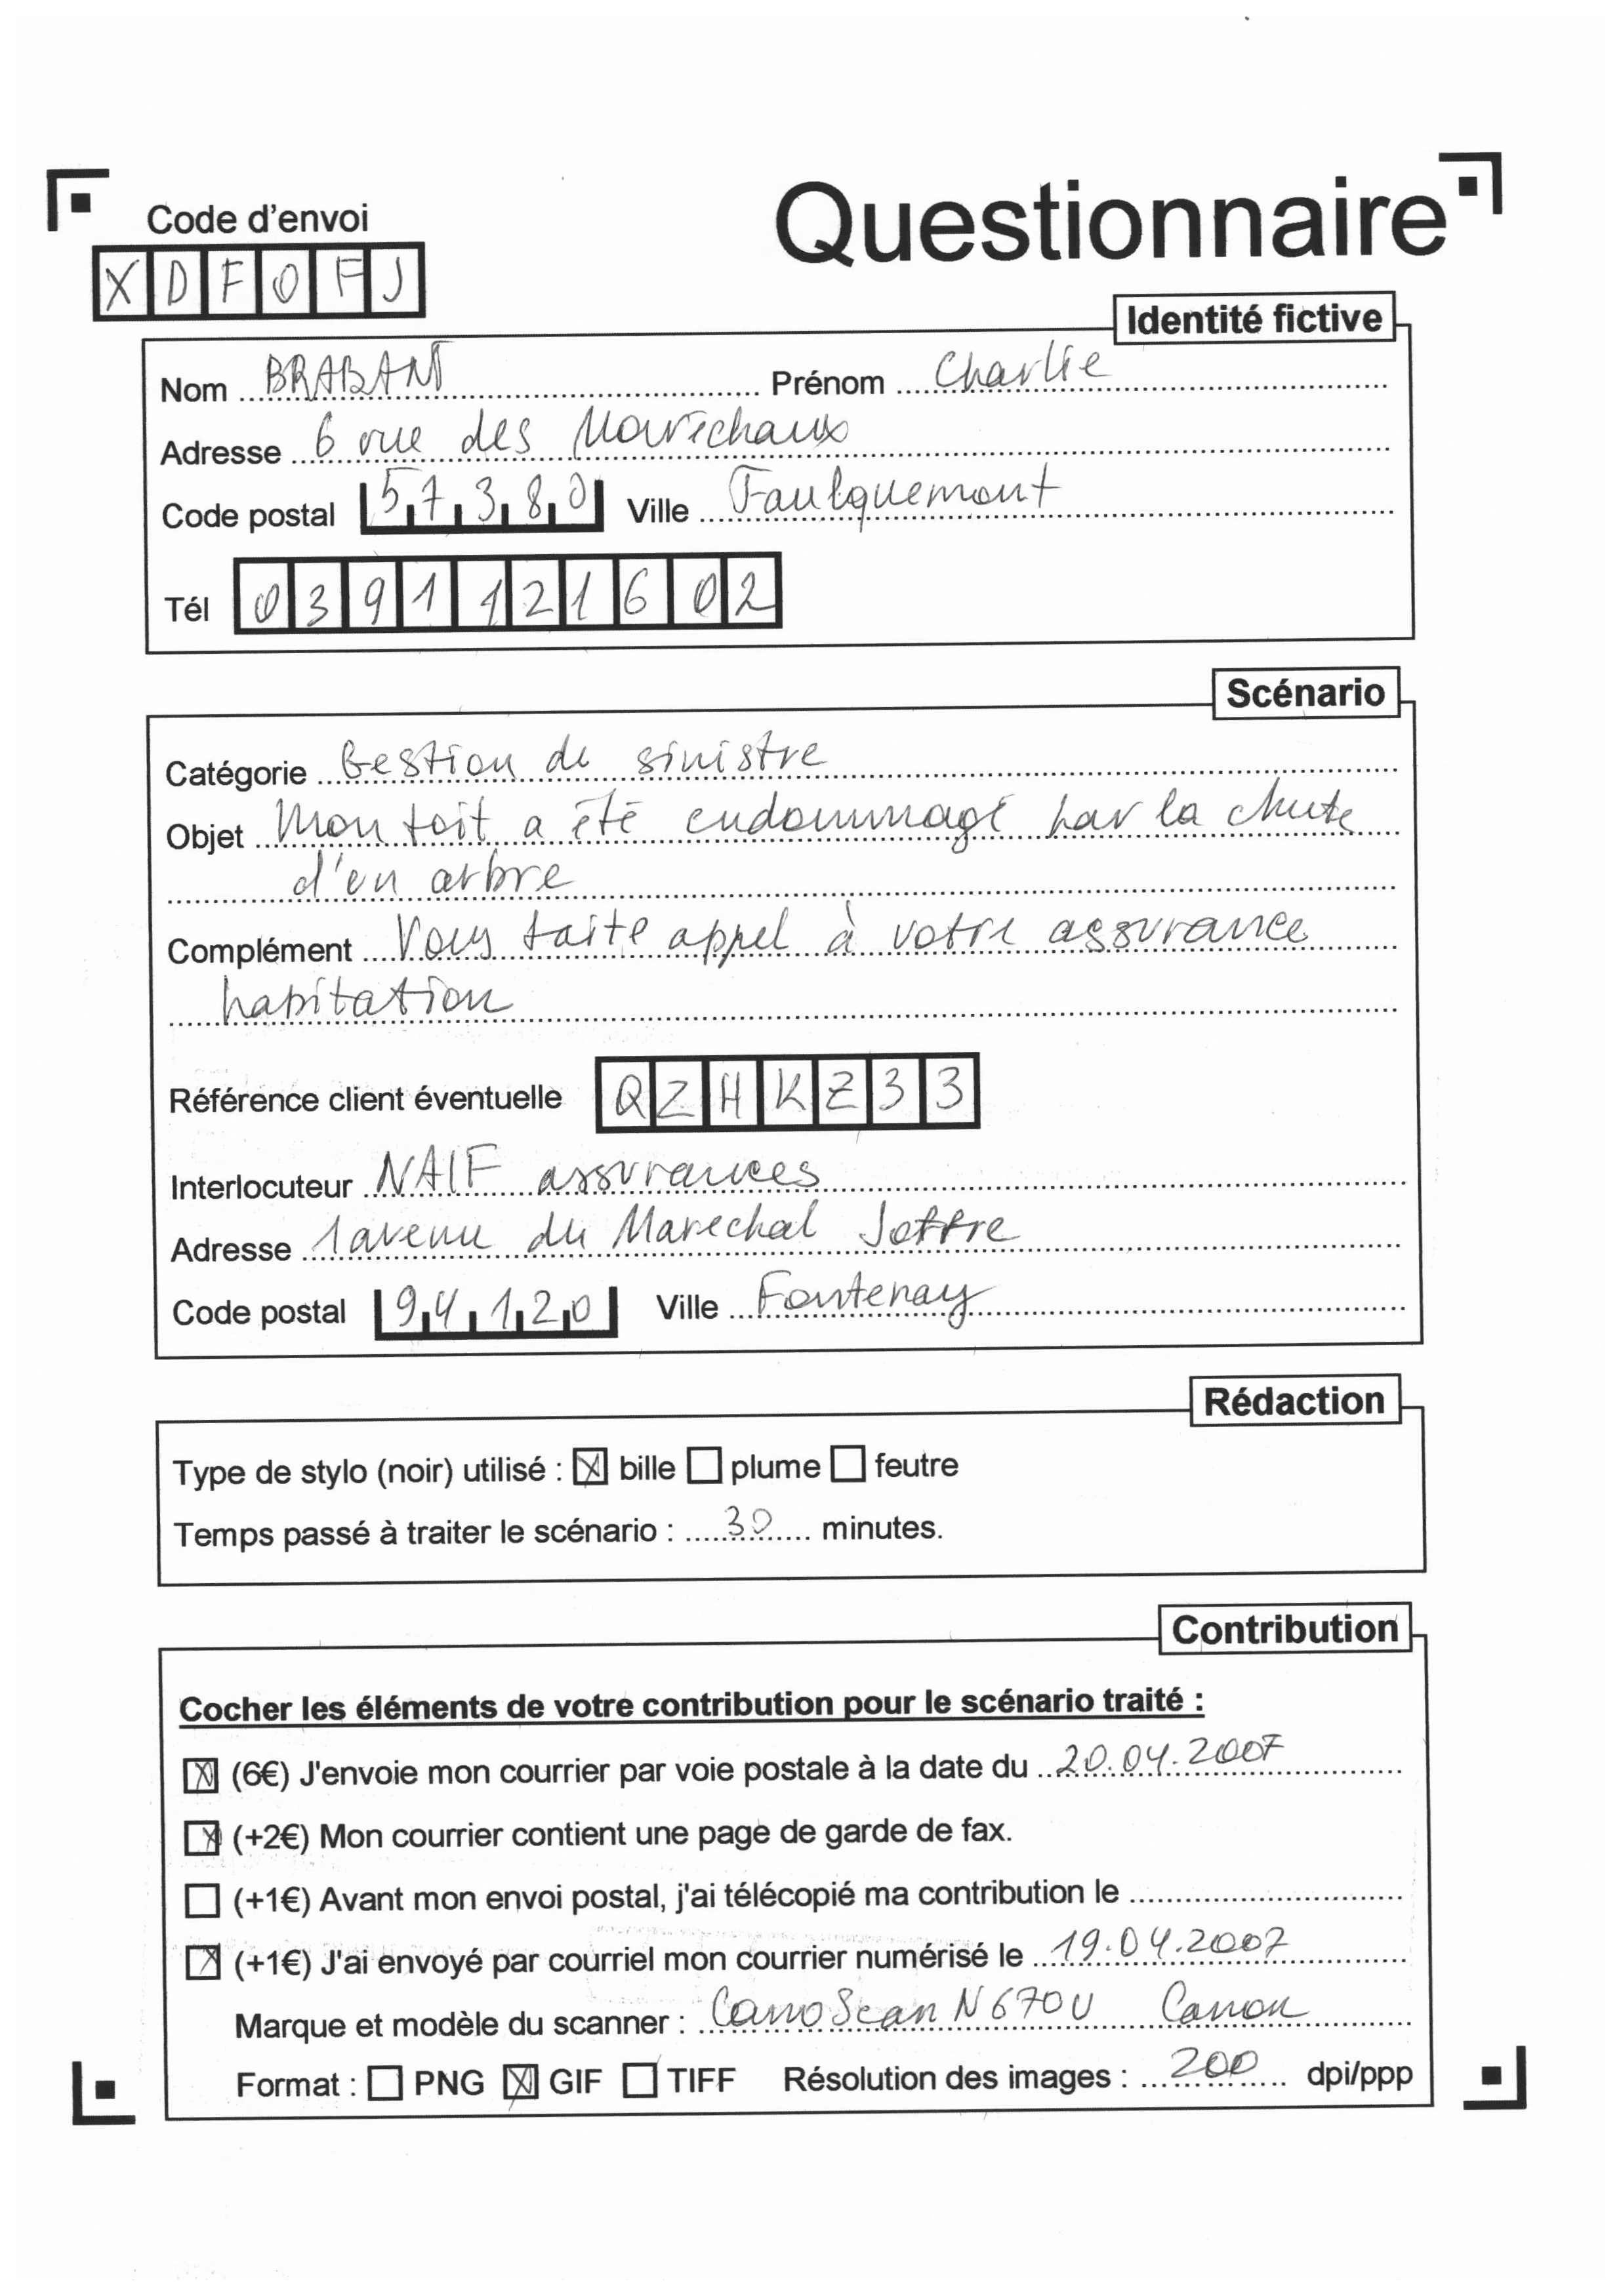 Code d'envoi
Questionnaire
XDFOFJ
Identité fictive
Nom BRABANT Prénom Charlie
Adresse 6 rue des Maréchaux
Code postal 57380 Ville Faulquemont
Tél 0391121602
Scénario
Catégorie Gestion de sinistre
Objet Mon toit a été endommagé par la chute
d'en arbre
Complément Vous faite appel à votre assurance
habitation
Référence client éventuelle QZHKZ33
Interlocuteur NAIF assurances
Adresse 1 avenue du Marechal Joffre
Code postal 94120 Ville Fontenay
Rédaction
Type de stylo (noir) utilisé : ☒ bille ☐ plume ☐ feutre
Temps passé à traiter le scénario : 30 minutes.
Contribution
Cocher les éléments de votre contribution pour le scénario traité :
☒ (6€) J'envoie mon courrier par voie postale à la date du 20.04.2007
☒ (+2€) Mon courrier contient une page de garde de fax.
☐ (+1€) Avant mon envoi postal, j'ai télécopié ma contribution le
☒ (+1€) J'ai envoyé par courriel mon courrier numérisé le 19.04.2007
Marque et modèle du scanner : CanoScan N670U Canon
Format : ☐ PNG ☒ GIF ☐ TIFF Résolution des images : 200 dpi/ppp